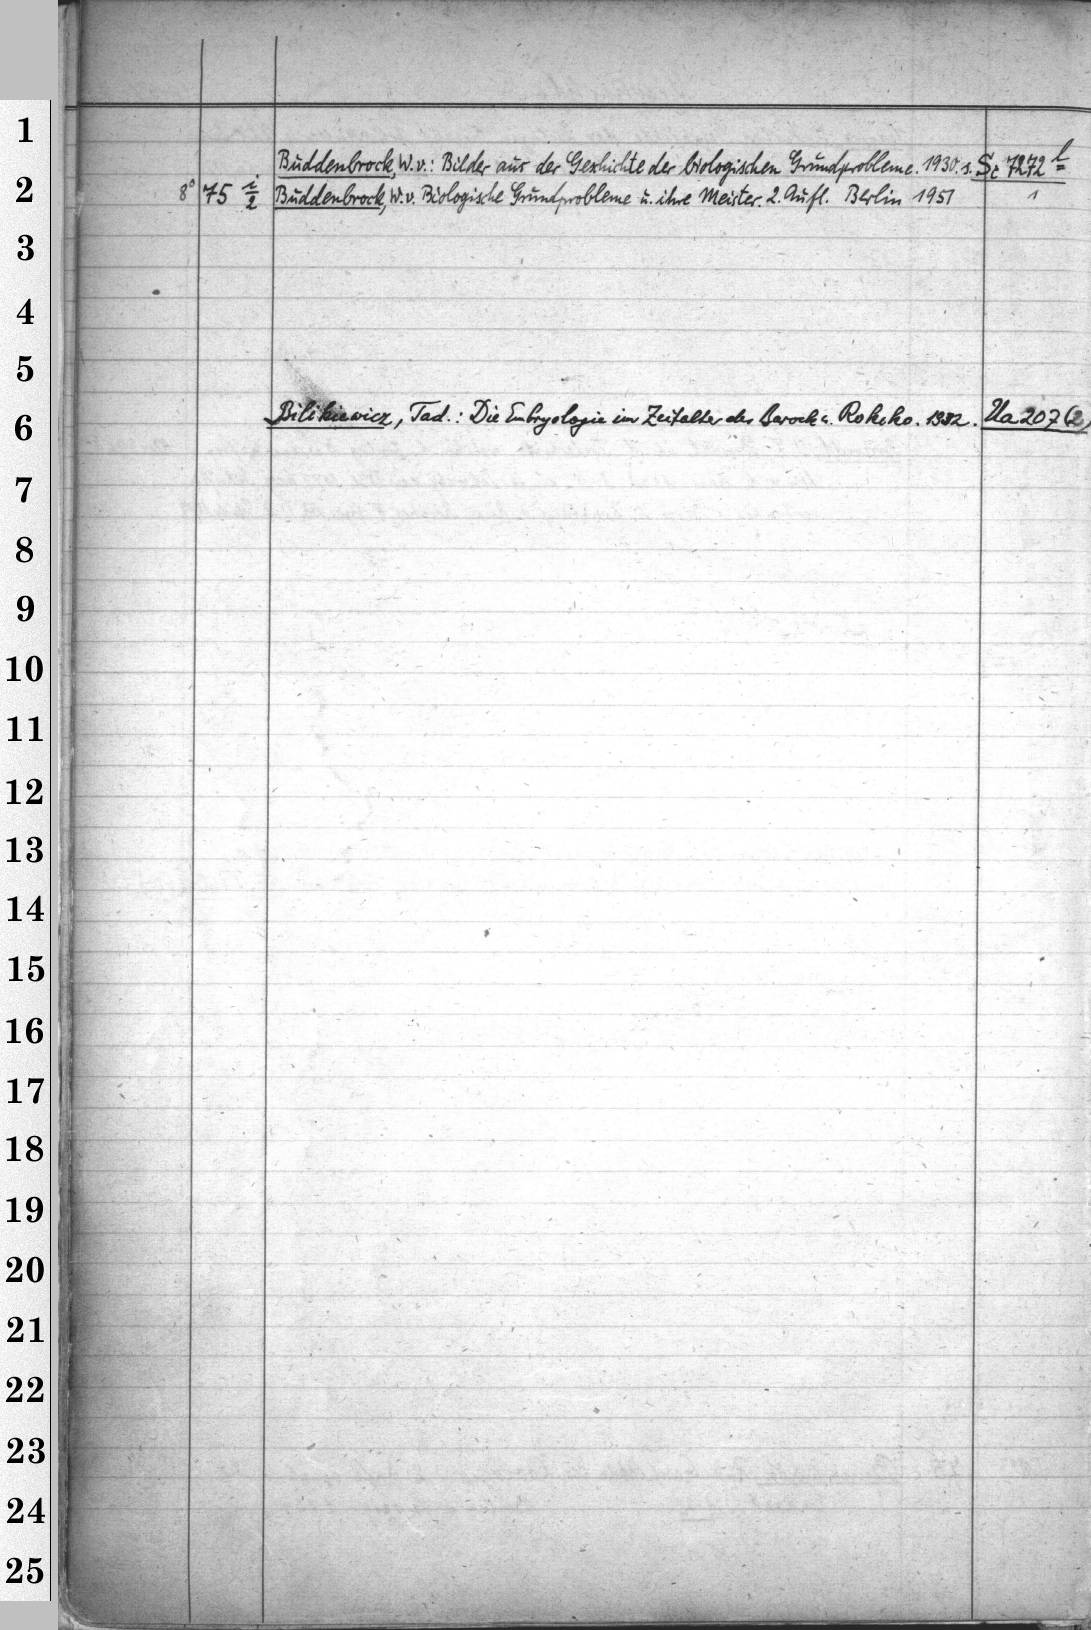 1
Buddenbrock, W. v.: Bilder aus der Geschichte der biologischen Grundprobleme. 1930. s. Sc 7272 l
2 8° 75 i/2 Buddenbrock, W. v. Biologische Grundprobleme u. ihre Meister. 2. Aufl. Berlin 1951 1
3
4
5
6 Bilikiewicz, Tad.: Die Embryologie im Zeitalter des Barock u. Rokoko. 1932. Ua 207 (2)
7
8
9
10
11
12
13
14
15
16
17
18
19
20
21
22
23
24
25